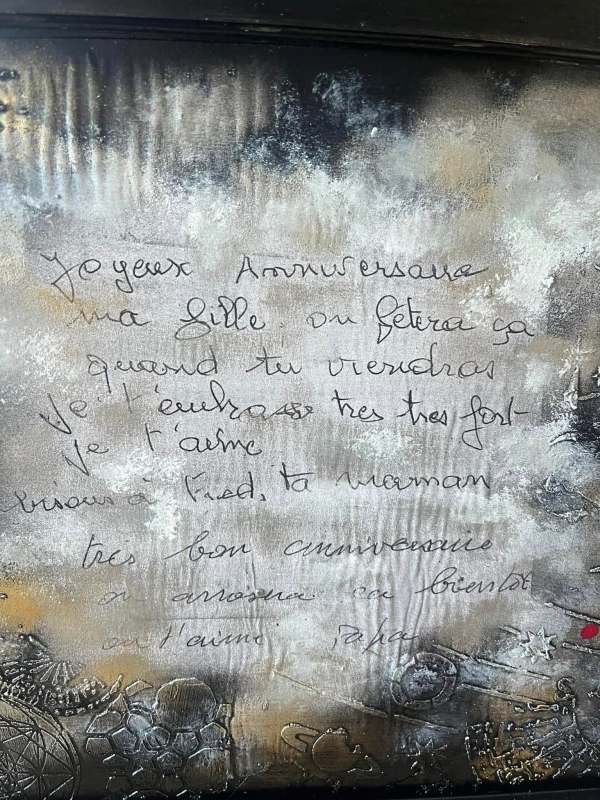 Joyeux Anniversaire
ma fille. on fêtera ça
quand tu viendras
Je t'embrasse tres tres fort
Je t'aime
bisous à Fred, ta maman
très bon anniversaire
on arrosera ca bientôt
on t'aime Papa